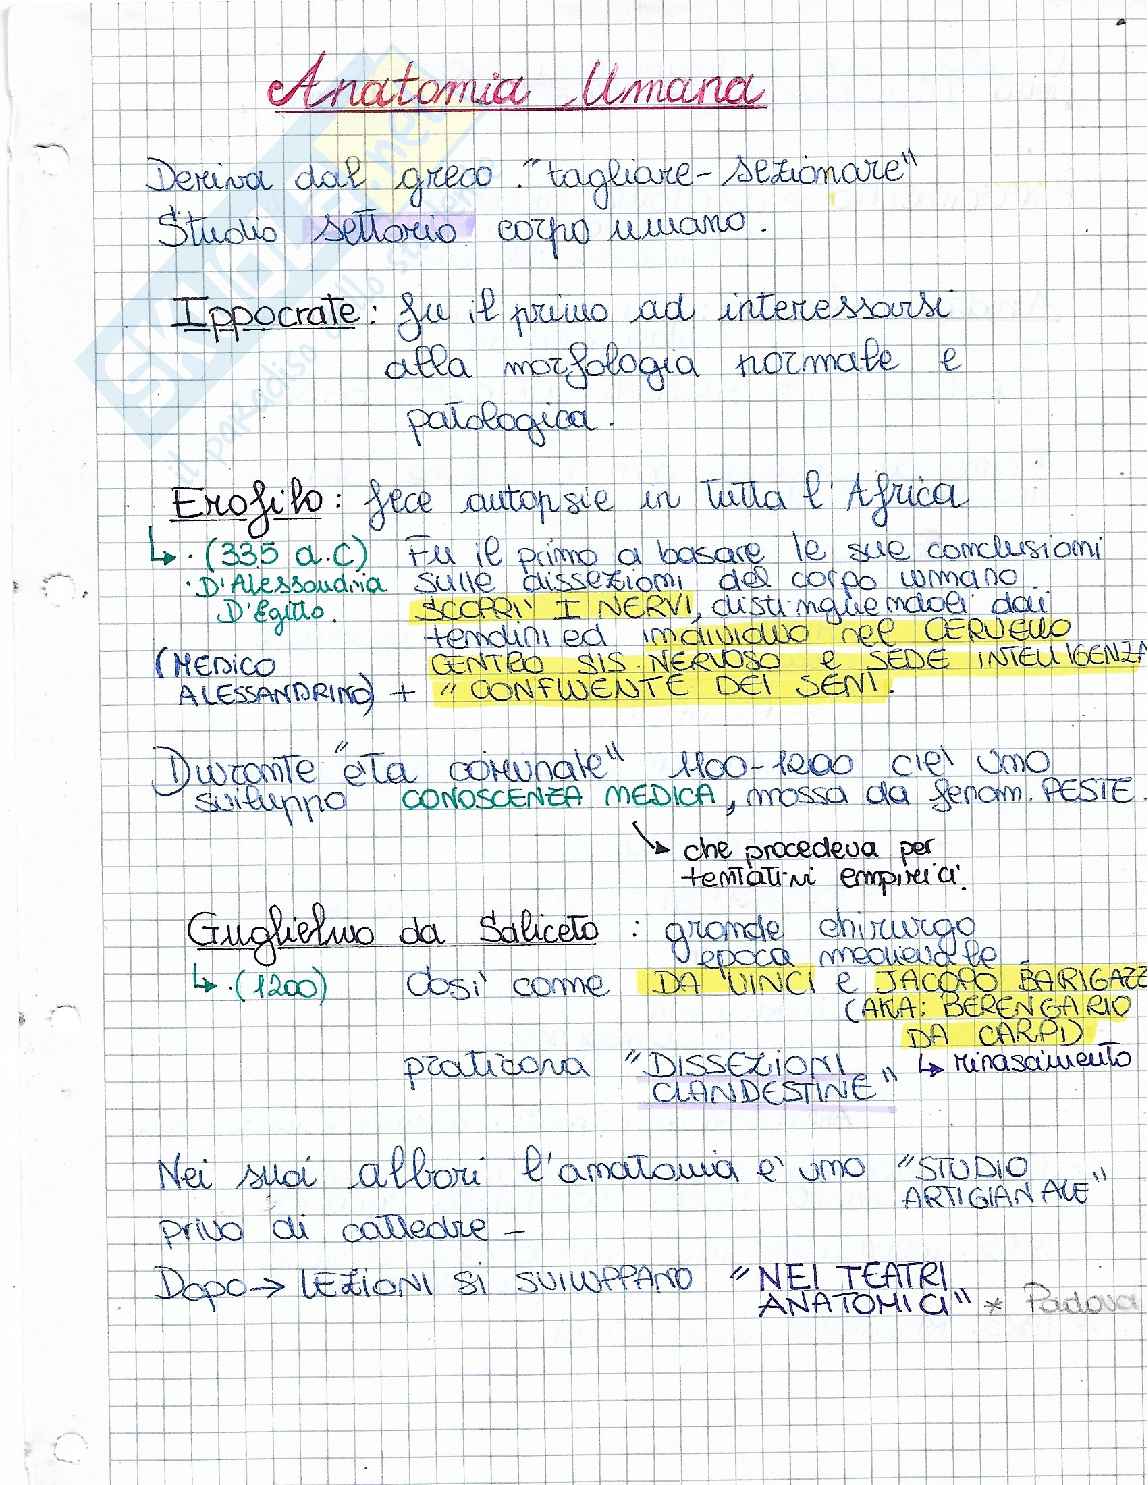 Anatomia Umana
Deriva dal greco "tagliare-sezionare"
Studio settorio corpo umano.
Ippocrate: fu il primo ad interessarsi
alla morfologia normale e
patologica.
Erofilo: fece autopsie in tutta l'Africa
↳ . (335 a.C) Fu il primo a basare le sue conclusioni
. D'Alessandria sulle dissezioni del corpo umano.
D'Egitto. SCOPRI' I NERVI, distinguendoli dai
tendini ed individuò nel CERVELLO
(MEDICO CENTRO SIS. NERVOSO e SEDE INTELLIGENZA
ALESSANDRINO) + " CONFLUENTE DEI SENI.
Durante "età comunale" 1100-1200 c'è uno
sviluppo CONOSCENZA MEDICA, mossa da fenom. PESTE.
↳ che procedeva per
tentativi empirici.
Guglielmo da Saliceto: grande chirurgo
epoca medievale.
↳ . (1200) così come DA VINCI e JACOPO BARIGAZZ
(AKA: BERENGARIO
DA CARPI)
praticava "DISSEZIONI ↳ rinascimento
CLANDESTINE"
Nei suoi albori l'anatomia è uno "STUDIO
ARTIGIANALE"
privo di cattedre -
Dopo → LEZIONI SI SVILUPPANO "NEI TEATRI
ANATOMICI" * Padova
SKUOLA.net
il paradiso dello studente